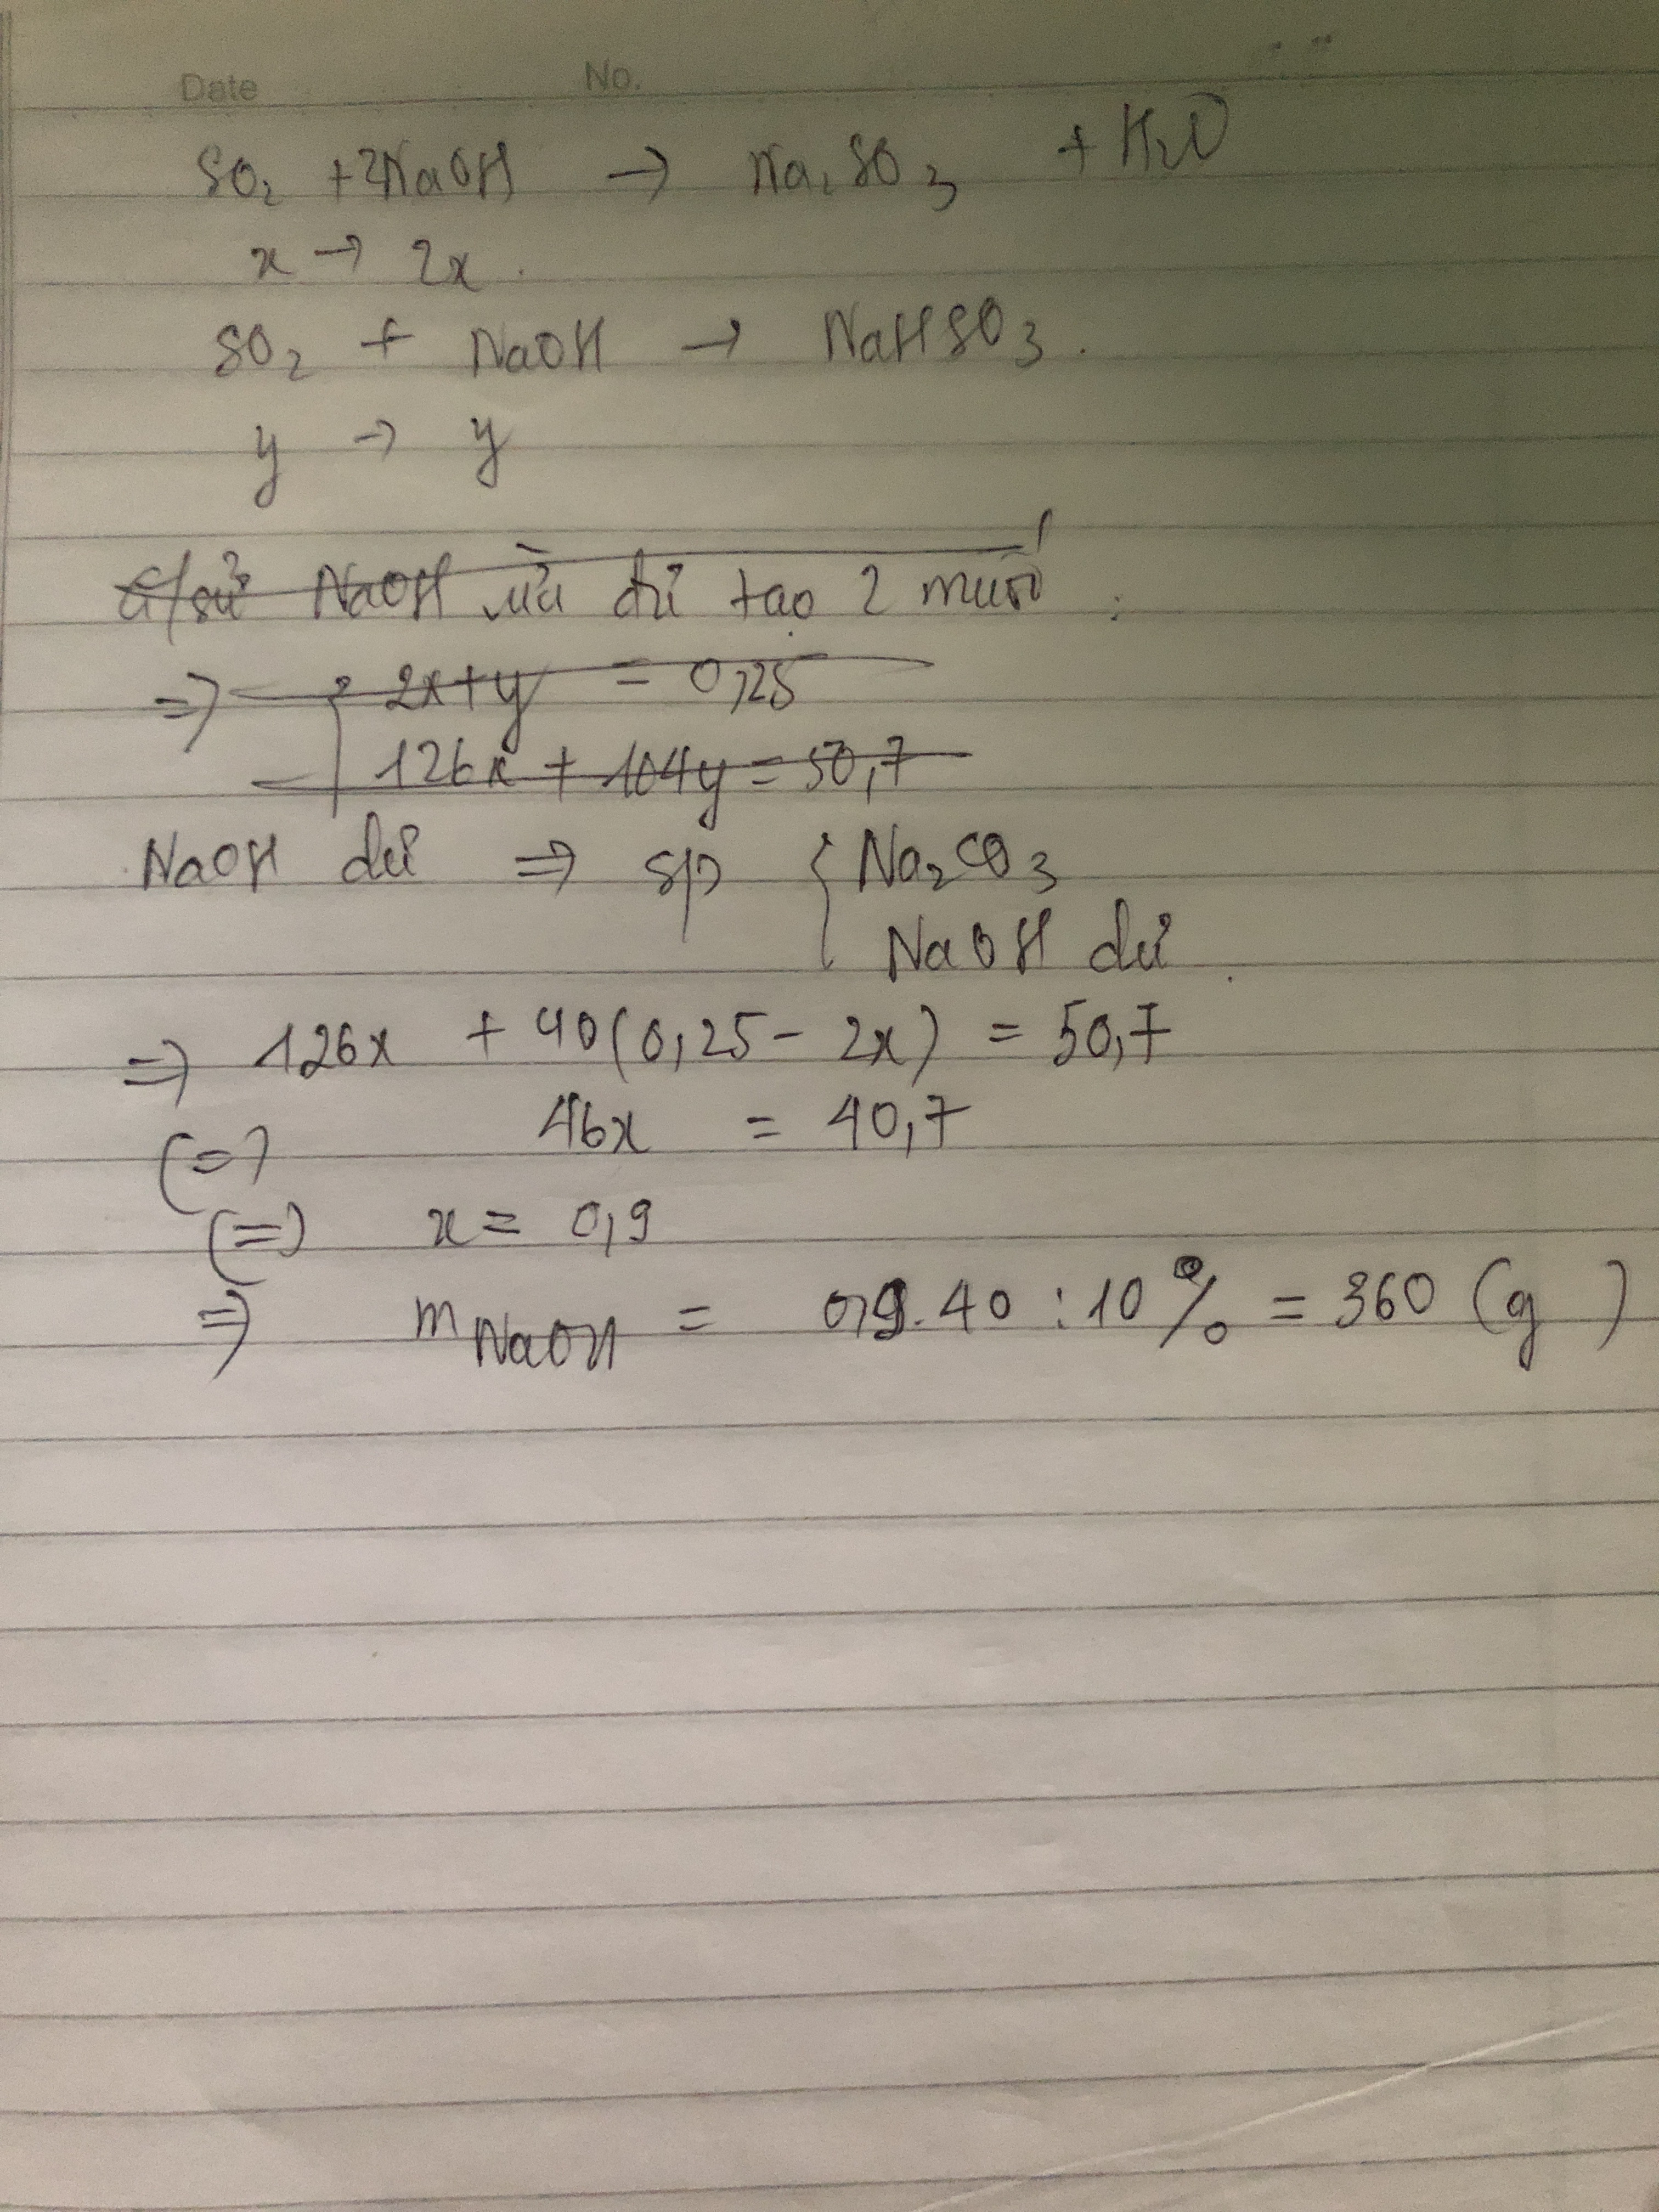 Date No.
SO₂ + 2NaOH → Na₂SO₃ + H₂O
x → 2x.
SO₂ + NaOH → NaHSO₃.
y → y
G/sử NaOH vừa đủ tạo 2 muối :
=> { 2x+y = 0,25
126x + 104y = 50,7
NaOH dư => sp { Na₂CO₃
NaOH dư.
=> 126x + 40(0,25 - 2x) = 50,7
(=) 46x = 40,7
(=) x = 0,9
=> m NaOH = 0,9.40 : 10% = 360 (g)